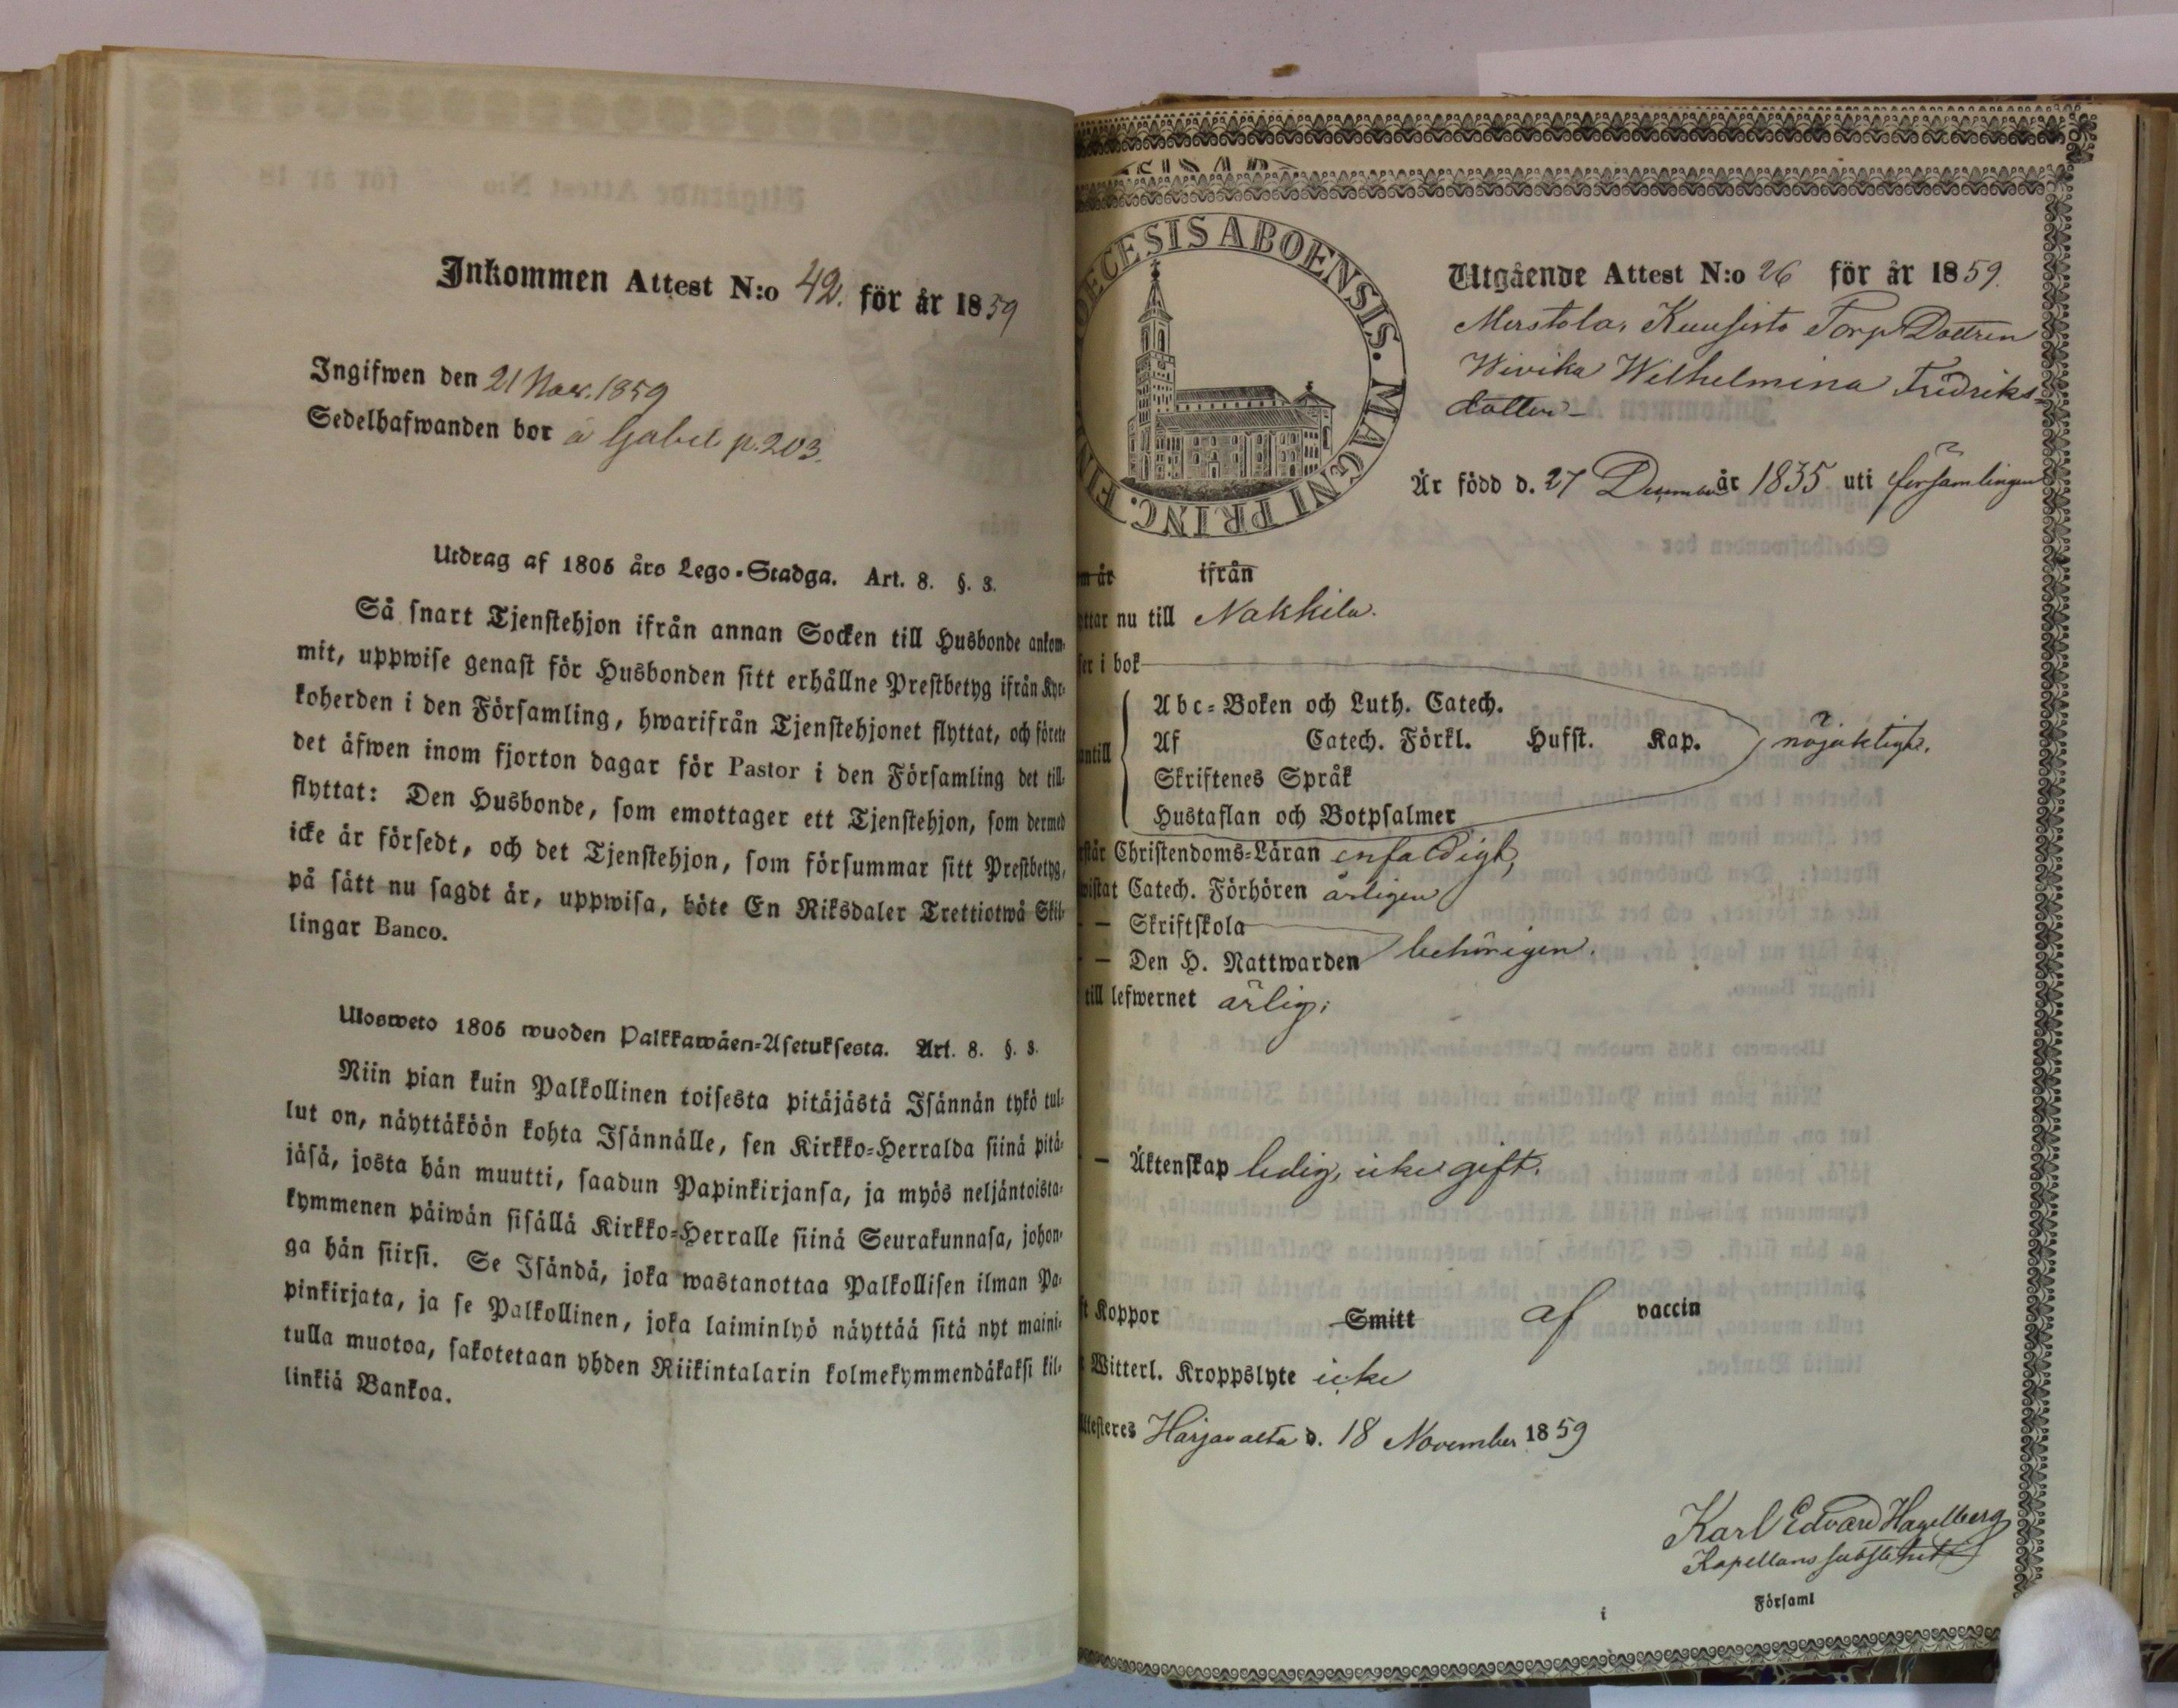 Inkommen Attest N:o 42. för år 1859
Ingifwen den 21 Nov. 1859
Sedelhafwanden bor å Gabel p. 203.
Utdrag af 1805 års Lego-Stadga. Art. 8. §. 3.
Så snart Tjenstehjon ifrån annan Socken till Husbonde ankom-
mit, uppwise genast för Husbonden sitt erhållne Prestbetyg ifrån Kyr-
koherden i den Församling, hwarifrån Tjenstehjonet flyttat, och förete
det äfwen inom fjorton dagar för Pastor i den Församling det till-
flyttat: Den Husbonde, som emottager ett Tjenstehjon, som dermed
icke är försedt, och det Tjenstehjon, som försummar sitt Prestbetyg,
på sätt nu sagdt är, uppwisa, böte En Riksdaler Trettiotwå Skil-
lingar Banco.
Ulosweto 1805 wuoden Palkkawäen-Asetuksesta. Art. 8. §. 3.
Niin pian kuin Palkollinen toisesta pitäjästä Isännän tykö tul-
lut on, näyttäköön kohta Isännälle, sen Kirkko-Herralda siinä pitä-
jäsä, josta hän muutti, saadun Papinkirjansa, ja myös neljäntoista-
kymmenen päiwän sisällä Kirkko-Herralle siinä Seurakunnasa, johon-
ga hän siirsi. Se Isändä, joka wastanottaa Palkollisen ilman Pa-
pinkirjata, ja se Palkollinen, joka laiminlyö näyttää sitä nyt maini-
tulla muotoa, sakotetaan yhden Riikintalarin kolmekymmendäkaksi kil-
linkiä Bankoa.
OECESIS ABOENSIS. MAGNI PRINC. FIN
Utgående Attest N:o 26 för år 1859.
Merstola, Kuusisto Torp Dottren
Wivika Wilhelmina Fredriks-
dotter
Är född d. 27 December år 1835 uti församlingen
m år ifrån
yttar nu till Nakkila.
ser i bok
Abc-Boken och Luth. Catech.
antill Af Catech. Förkl. Hufst. Kap. nöjaktigt,
Skriftenes Språk
Hustaflan och Botpsalmer
rstår Christendoms-Läran enfaldigt,
wistat Catech. Förhören årligen
— Skriftskola
— Den H. Nattwarden behörigen.
till lefwernet ärlig;
— Äktenskap ledig, icke gift.
ft Koppor Smitt af vaccin
Witterl. Kroppslyte icke
ttesteres Harjavalta d. 18 November 1859
Karl Edvard Hagelberg
Kapellans substitut
i Församl